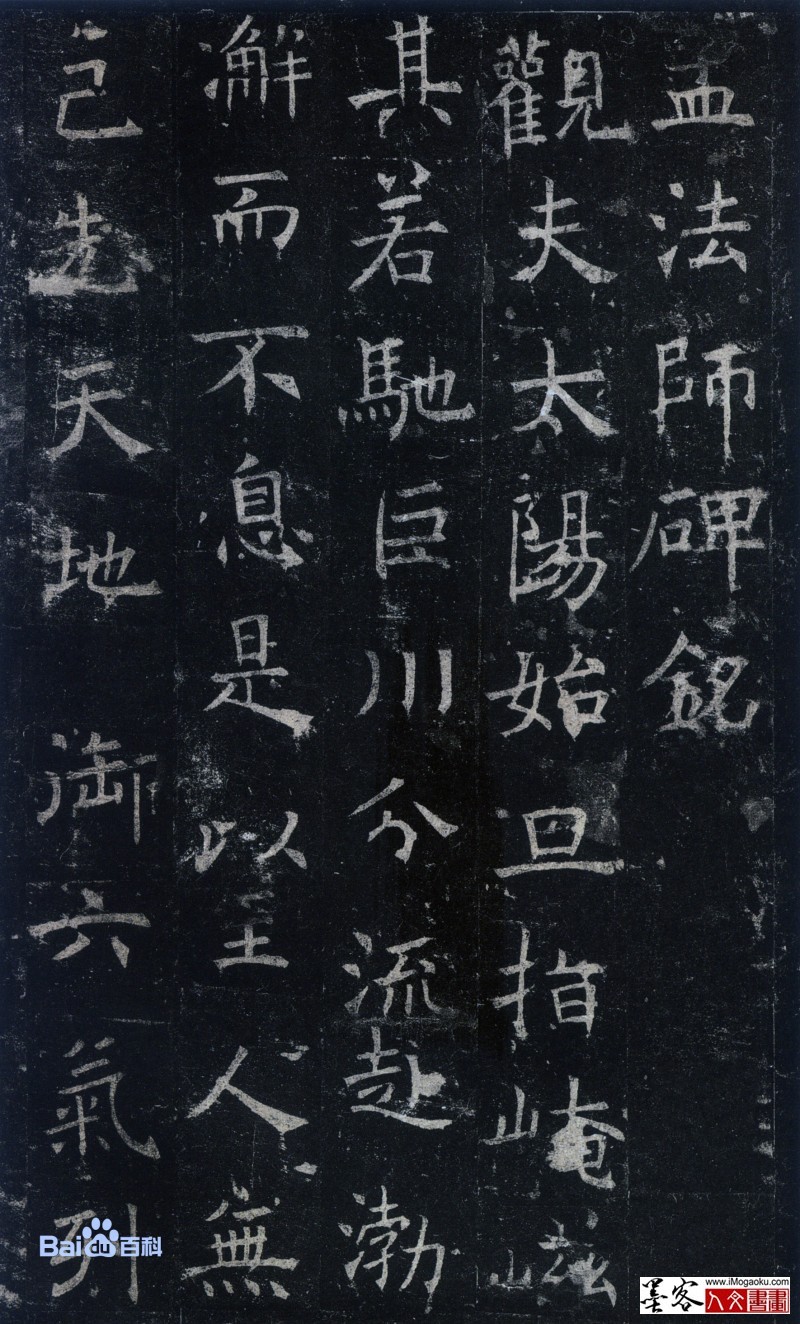 孟法師碑銘
觀夫太陽始旦指崦嵫
其若馳巨川分流赴渤
澥而不息是以至人無
己先天地 御六氣列
Bai du 百科
墨客
www.iMogaoku.com
人文書畫